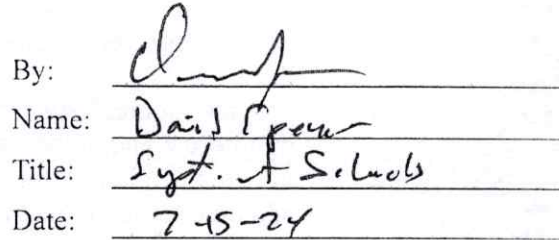 By:
Name: David Spencer
Title: Supt. of Schools
Date: 7-15-24